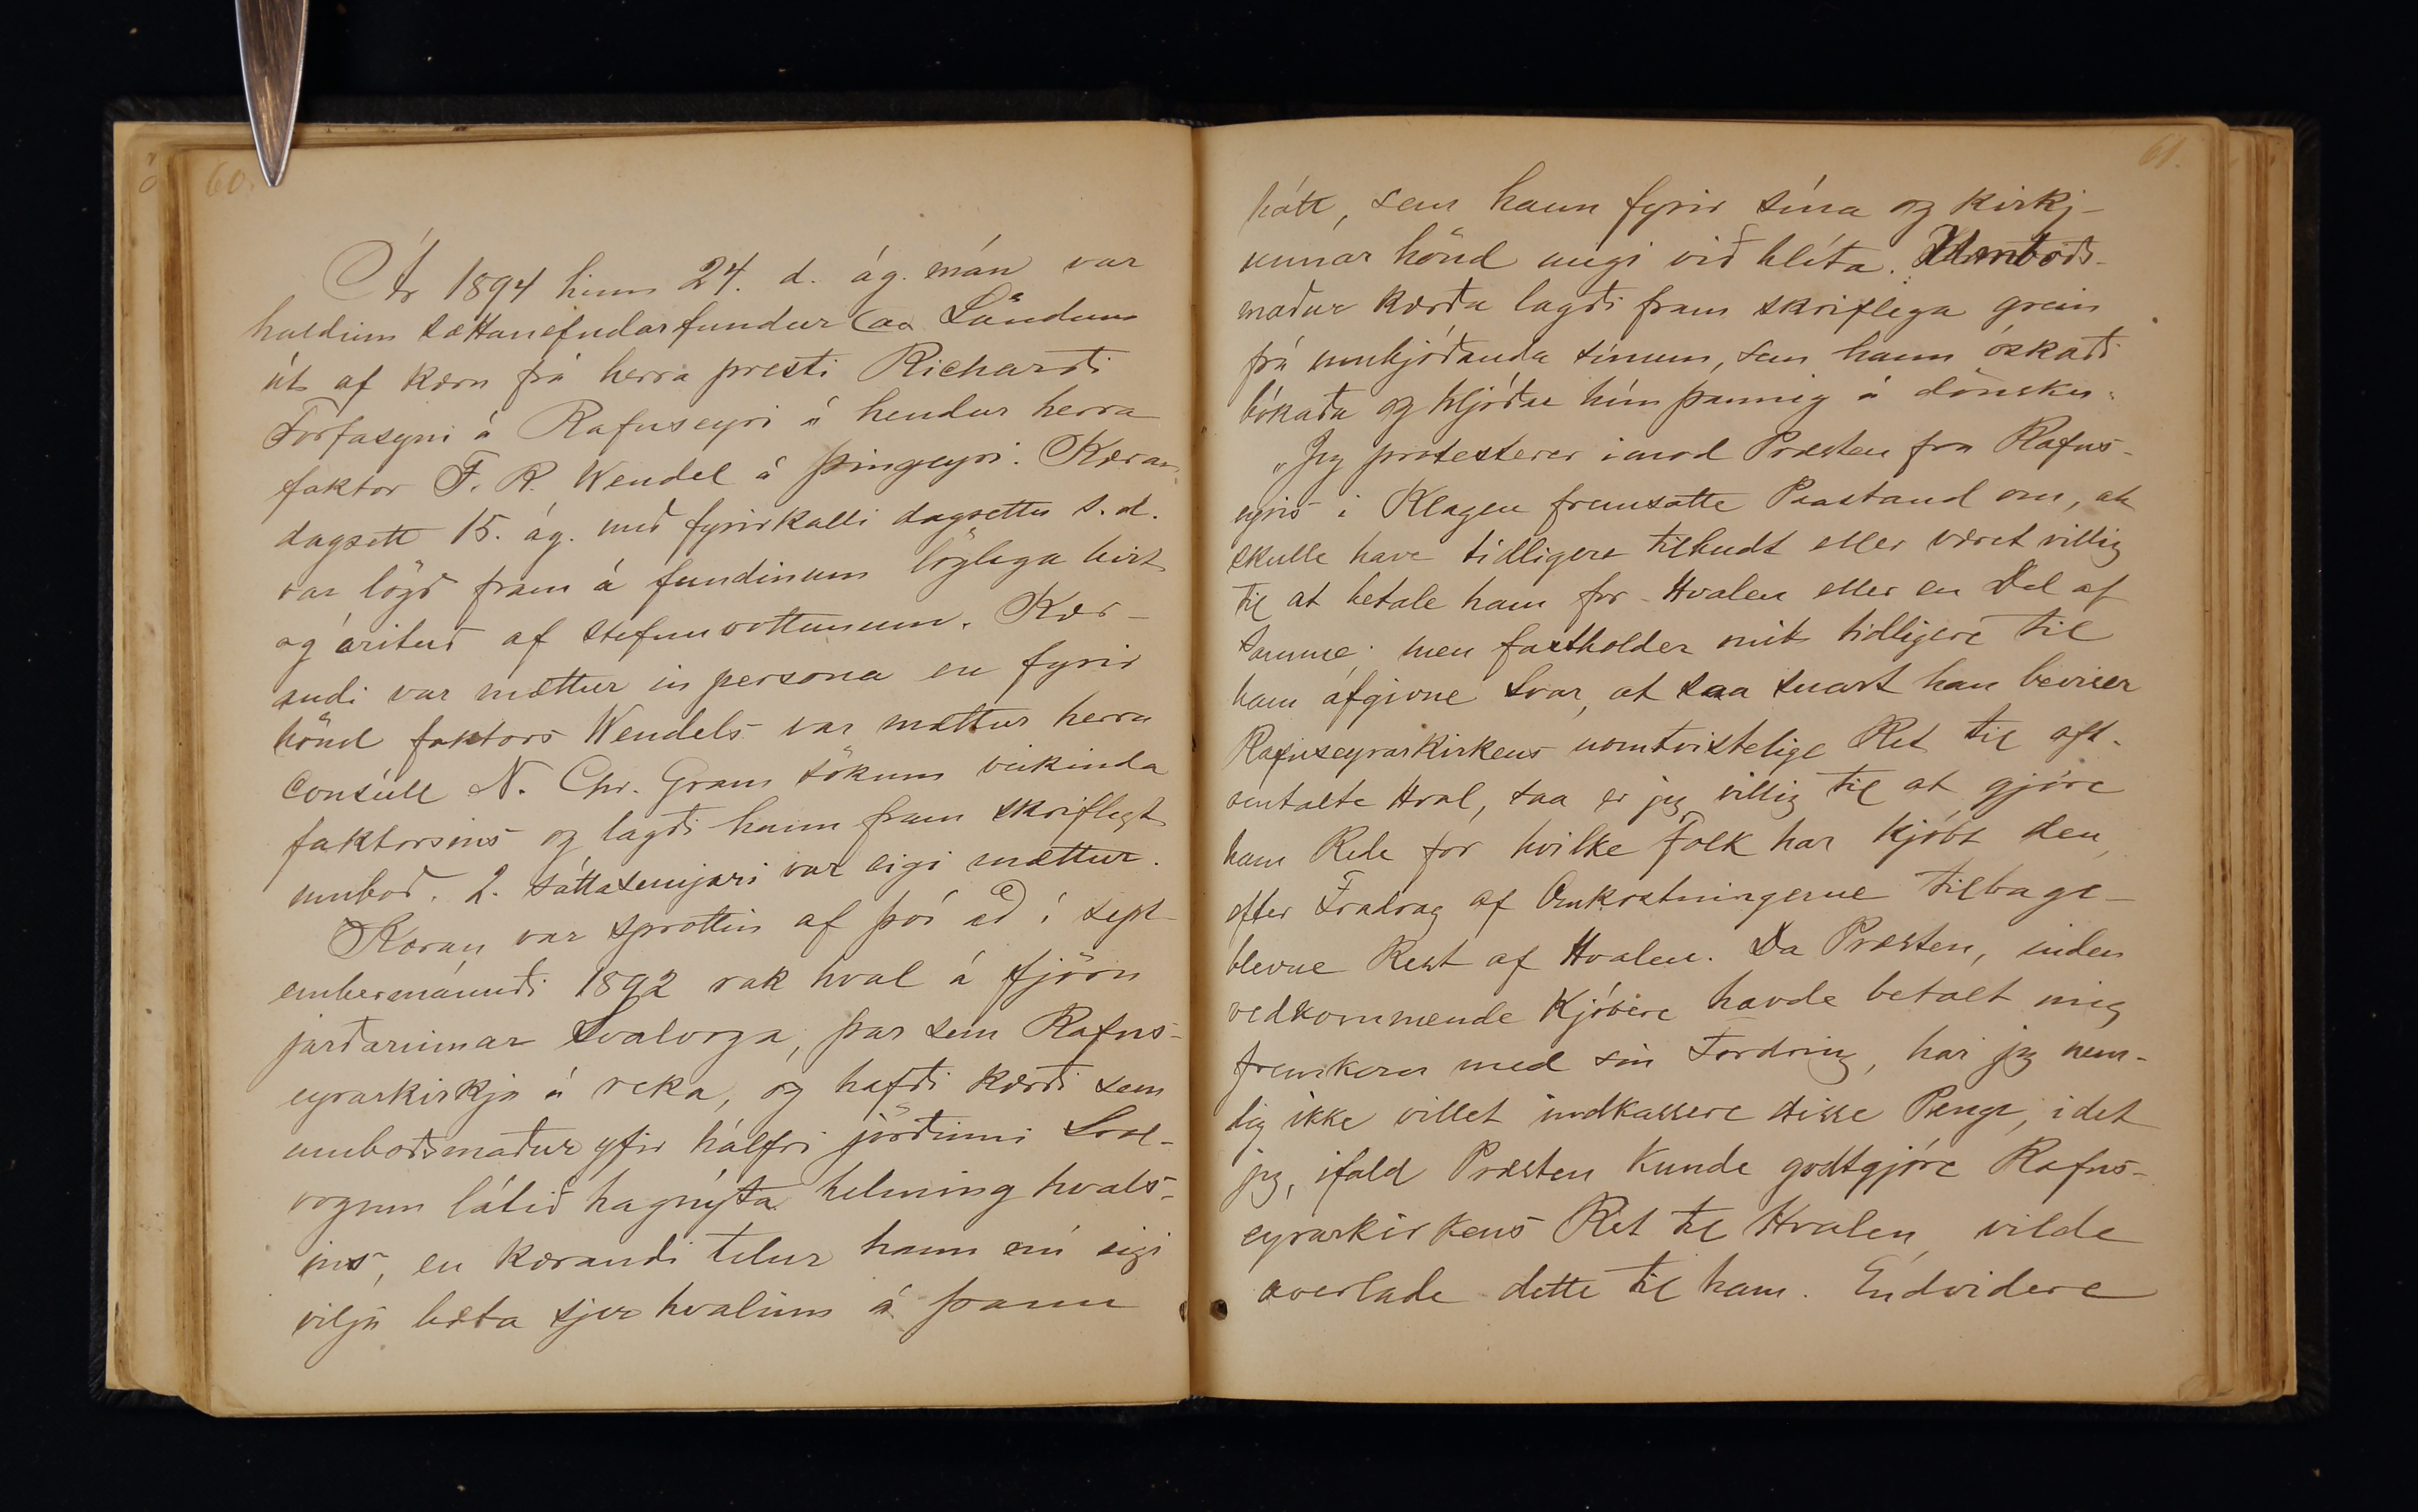 60.
Ár 1894 hinn 24. d. ág. mán var
haldinn sættanefndarfundur (aa Söndum
út af kæru frá herra presti Richarði
Torfasyni á Rafnseyri á hendur herra
faktor F. R. Wendel á Þingeyri. Kæran
dagsett 15. ág. með fyrirkalli dagsettu s. d.
var lögð fram á fundinum löglega birt
og árituð af stefnuvottunum. Kær-
andi var mættur in persona en fyrir
hönd faktors Wendels var mættur herra
Consúll N. Chr. Gram sökum veikinda
faktorsins og lagði hann fram skriflegt
umboð. 2. sáttasemjari var eigi mættur.
Kæran var sprottin af því að í sept-
embermánuði 1892 rak hval á fjöru
jarðarinnar Svalvoga, þar sem Rafns-
eyrarkirkja á reka, og hafði kærði sem
umboðsmaður yfir hálfri jörðinni Sval-
vogum látið hagnýta helming hvals-
ins, en kærandi telur hann nú eigi
vilja bæta sjer hvalinn á þann
61.
hátt, sem hann fyrir sína og kirkj-
unnar hönd megi við hlíta. Umboðs-
maður kærða lagði fram skriflega grein
frá umbjóðanda sínum, sem hann óskaði
bókaða og hljóðar hún þannig á dönsku:
„Jeg protesterer imod Præsten fra Rafns-
eyris i Klagen fremsatte Paastand om, at
skulle have tidligere tilbudt eller været villig
til at betale ham for Hvalen eller en Del af
samme; men fastholder mit tidligere til
ham afgivne Svar, at saa snart han beviser
Rafnseyrarkirkens uomtvistelige Ret til oft-
omtalte Hval, saa er jeg villig til at gjöre
ham Rede for hvilke Folk har kjöbt den,
efter Fradrag af Omkostningerne tilbage-
blevne Rest af Hvalen. Da Præsten, inden
vedkommende Kjöbere havde betalt mig
fremkom med sin Fordring, har jeg nem-
lig ikke villet indkassere disse Penge, idet
jeg, ifald Præsten kunde godtgjöre Rafns-
eyrarkirkens Ret til Hvalen, vilde
overlade dette til ham. Endvidere